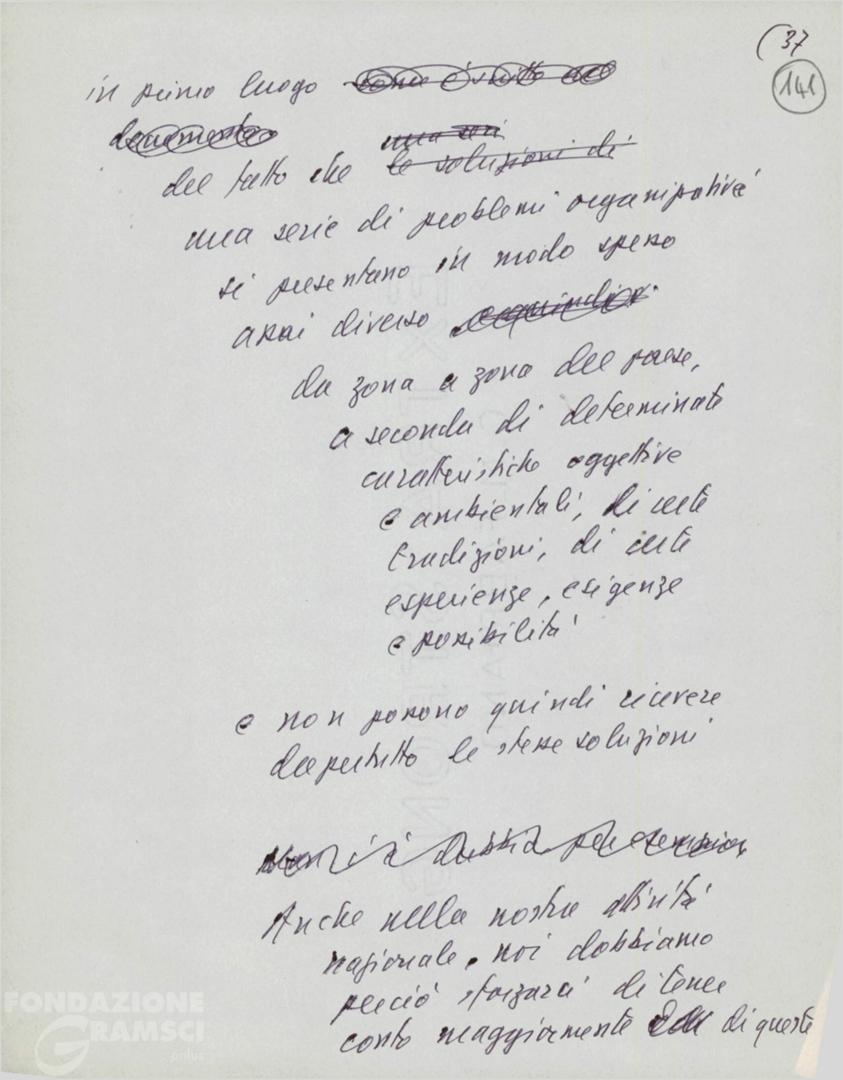 (37
141
in primo luogo
del fatto che le soluzioni di
una serie di problemi organizzativi
si presentano in modo spesso
assai diverso
da zona a zona del paese,
a seconda di determinate
caratteristiche oggettive
e ambientali, di certe
tradizioni, di certe
esperienze, esigenze
e possibilità
e non possono quindi ricevere
dappertutto le stesse soluzioni
Anche nella nostra attività
nazionale, noi dobbiamo
perciò sforzarci di tener
conto maggiormente di queste
FONDAZIONE
GRAMSCI
onlus